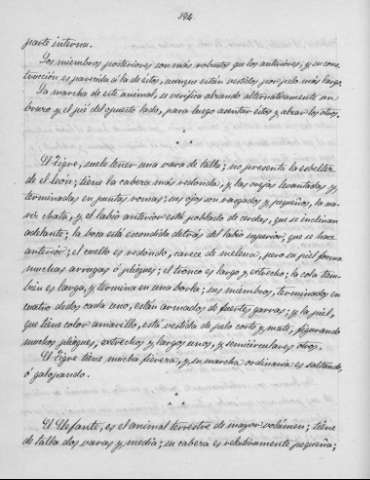 194.
parte interna.
Los miembros posteriores son más robustos que los anteriores, y su cons-
trucción es parecida á la de éstos, aunque están vestidos por pelo más largo.
La marcha de este animal, se verifica alzando alternativamente un
brazo y el pié del opuesto lado, para luego asentar éstos y alzar los otros.
El Tigre, suele tener una vara de talla; no presenta la esbeltez
de el león; tiene la cabeza más redonda, y las orejas levantadas y
terminadas en puntas romas; sus ojos son rasgados y pequeños, la na-
riz chata, y el labio anterior está poblado de cerdas, que se inclinan
adelante; la boca está escondida detrás del labio superior, que se hace
anterior; el cuello es redondo, carece de melena, pero su piel forma
muchas arrugas ó pliegues; el tronco es largo y estrecho; la cola tam-
bién es larga, y termina en una borla; sus miembros, terminados en
cuatro dedos cada uno, están armados de fuertes garras; y la piel,
que tiene color amarillo, está vestida de pelo corto y mate, figurando
muchos pliegues, estrechos y largos unos, y semicirculares otros.
El Tigre tiene mucha fiereza, y su marcha ordinaria es saltando,
ó galopando.
El Elefante, es el animal terrestre de mayor volúmen; tiene
de talla dos varas y media; su cabeza es relativamente pequeña;